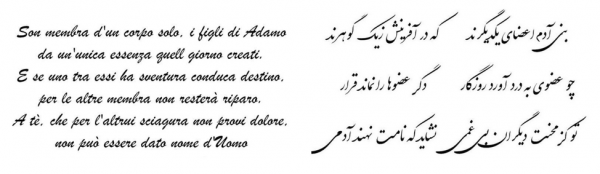 Son membra d'un corpo solo, i figli di Adamo
da un'unica essenza quell giorno creati.
E se uno tra essi ha sventura conduca destino,
per le altre membra non resterà riparo.
A tè, che per l'altrui sciagura non provi dolore,
non può essere dato nome d'Uomo
بنی آدم اعضای یکدیگرند که در آفرینش ز یک گوهرند
چو عضوی به درد آورد روزگار دگر عضوها را نماند قرار
تو کز محنت دیگران بی غمی نشاید که نامت نهند آدمی